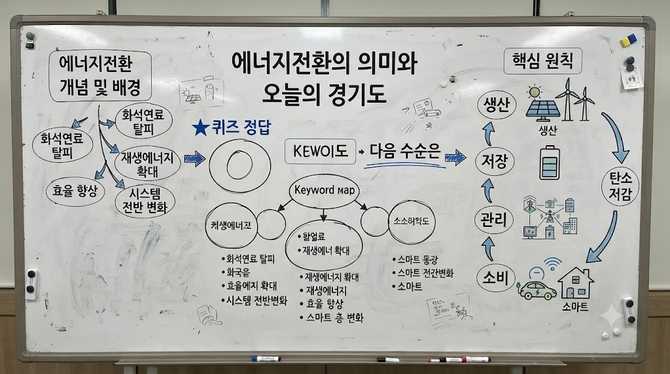 에너지전환의 의미와
오늘의 경기도
에너지전환
개념 및 배경
화석연료
탈피
화석연료
탈피
재생에너지
확대
효율 향상
시스템
전반 변화
★퀴즈 정답
KEWO이도 → 다음 수순은
Keyword Map
커생에너끄
• 화석연료 탈피
• 화국음
• 효율에지 확대
• 시스템 전반변화
• 활얼료
• 재생에너 확대
• 재생에너지 확대
• 재생에너지
• 효율 향상
• 스마트 층 변화
소소허학도
• 스마트 동광
• 스마트 전간변화
• 소마트
핵심 원칙
생산
생산
저장
관리
소비
소마트
탄소
저감